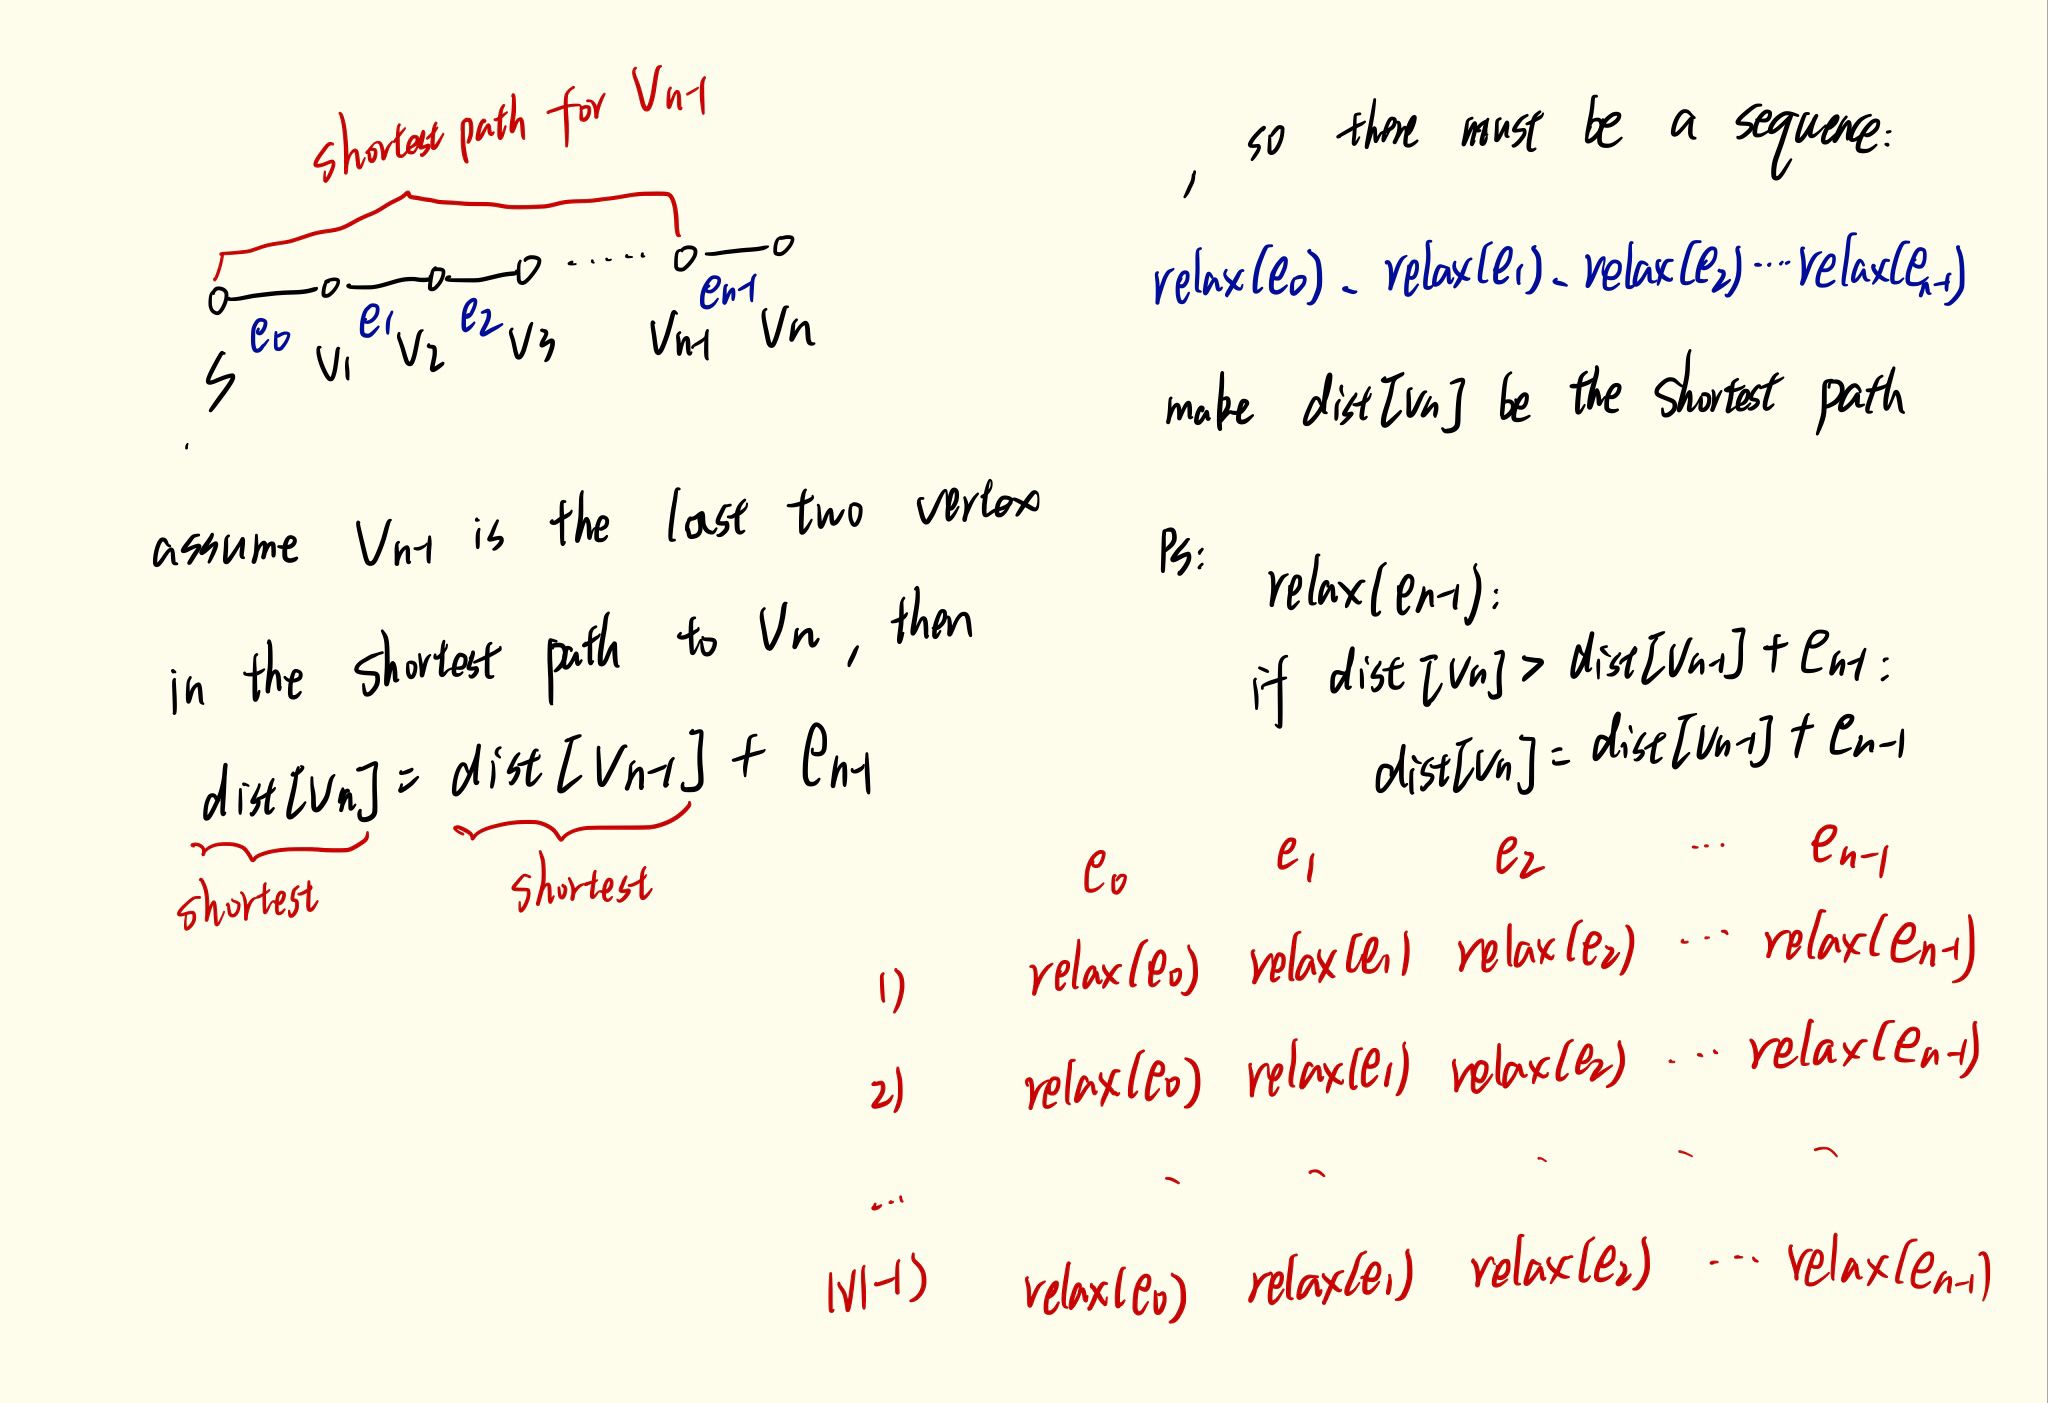 shortest path for Vn-1
e0 e1 e2 en-1
S V1 V2 V3 Vn-1 Vn
assume Vn-1 is the last two vertex
in the shortest path to Vn, then
dist[Vn] = dist[Vn-1] + en-1
shortest shortest
, so there must be a sequence:
relax(e0)、relax(e1)、relax(e2)…relax(en-1)
make dist[Vn] be the shortest path
Ps:
relax(en-1):
if dist[Vn] > dist[Vn-1] + en-1:
dist[Vn] = dist[Vn-1] + en-1
e0 e1 e2 … en-1
1) relax(e0) relax(e1) relax(e2) … relax(en-1)
2) relax(e0) relax(e1) relax(e2) … relax(en-1)
…
|V|-1) relax(e0) relax(e1) relax(e2) … relax(en-1)